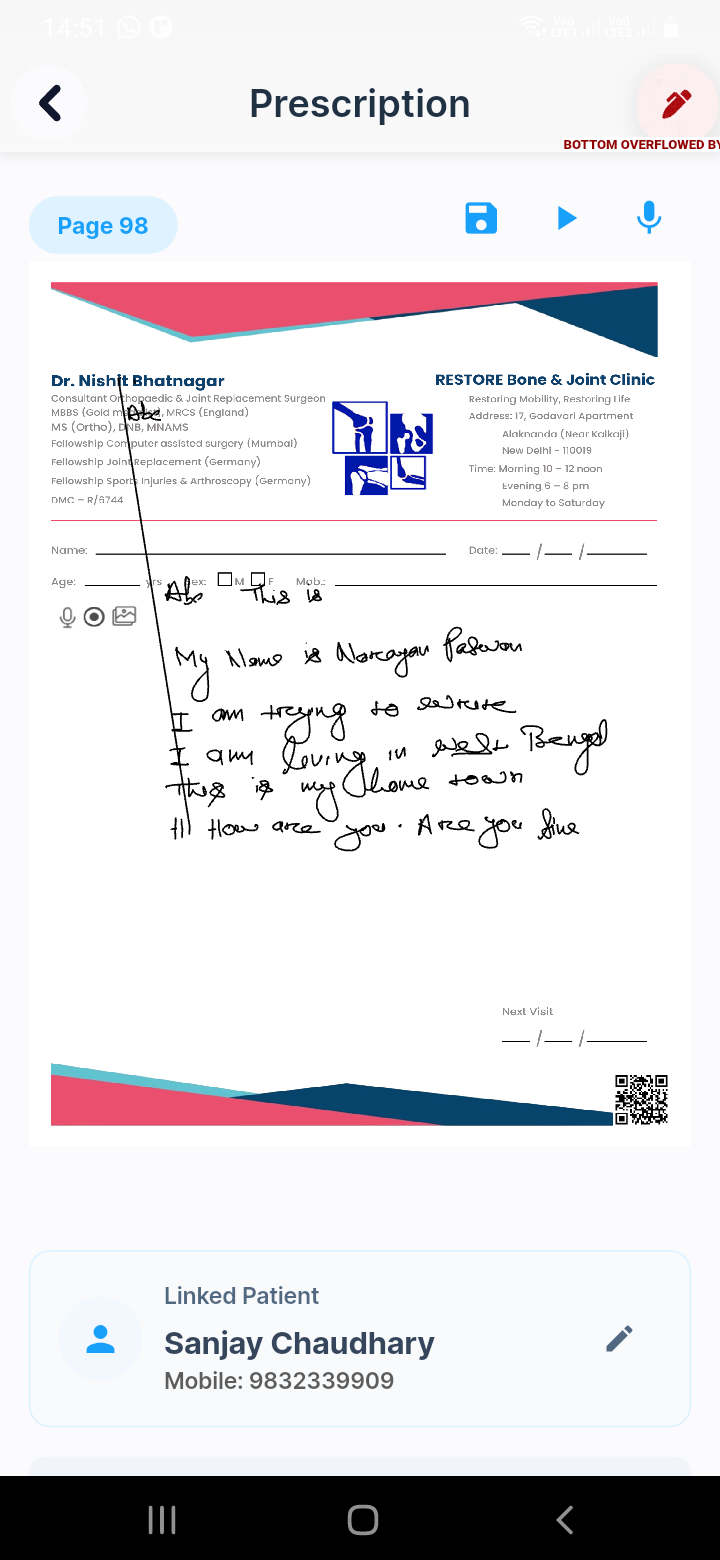 14:51
Prescription
BOTTOM OVERFLOWED BY
Page 98
Dr. Nishit Bhatnagar
Consultant Orthopaedic & Joint Replacement Surgeon
MBBS (Gold medalist), MRCS (England)
Abc
MS (Ortho), DNB, MNAMS
Fellowship Computer assisted surgery (Mumbai)
Fellowship Joint Replacement (Germany)
Fellowship Sports Injuries & Arthroscopy (Germany)
DMC – R/6744
RESTORE Bone & Joint Clinic
Restoring Mobility, Restoring Life
Address: 17, Godavari Apartment
Alaknanda (Near Kalkaji)
New Delhi - 110019
Time: Morning 10 – 12 noon
Evening 6 – 8 pm
Monday to Saturday
Name: Date: / /
Age: yrs Sex: M F Mob.:
Abc This is
My Name is Narayan Paswan
I am trying to
I am living in West Bengal
This is my home town
How are you. Are you fine
Next Visit
/ /
Linked Patient
Sanjay Chaudhary
Mobile: 9832339909